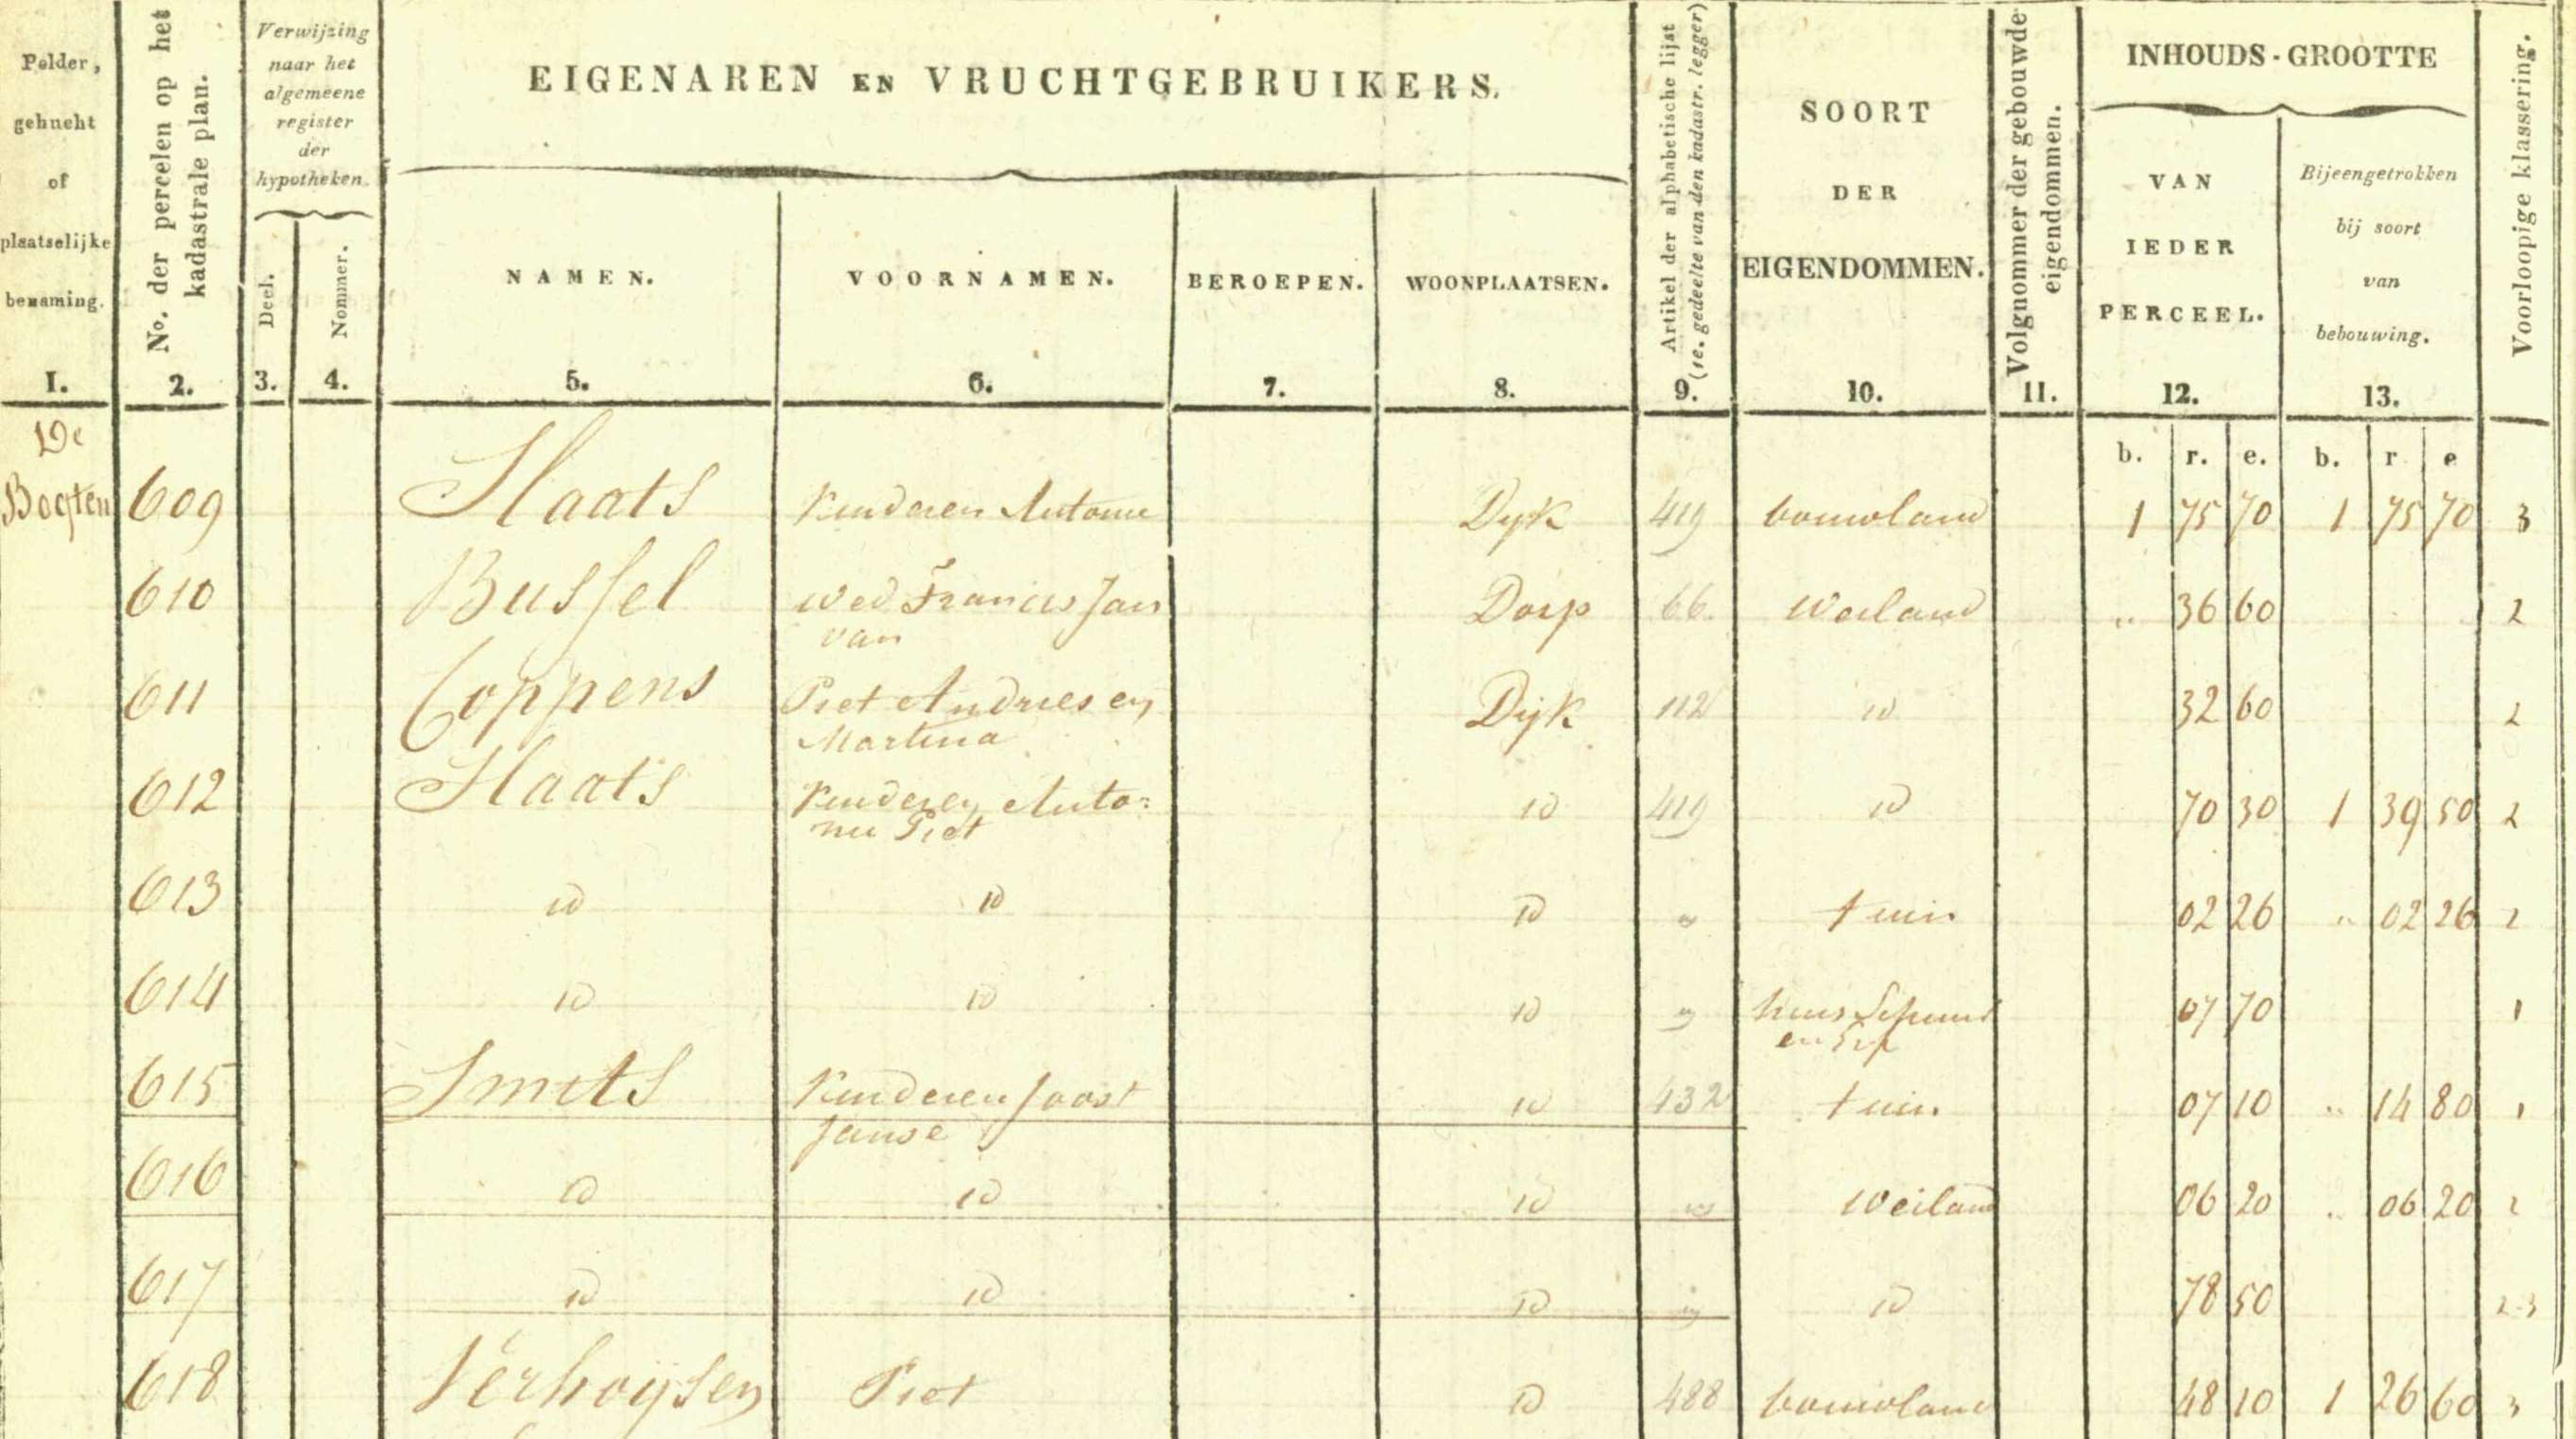 Polder,
gehucht
of
plaatselijke
benaming.
1.
No. der perceelen op het
kadastrale plan.
2.
Verwijzing
naar het
algemeene
register
der
hypotheken.
Deel.
3.
Nommer.
4.
EIGENAREN EN VRUCHTGEBRUIKERS.
NAMEN.
5.
VOORNAMEN.
6.
BEROEPEN.
7.
WOONPLAATSEN.
8.
Artikel der alphabetische lijst
(1e. gedeelte van den kadastr. legger)
9.
SOORT
DER
EIGENDOMMEN.
10.
Volgnommer der gebouwde
eigendommen.
11.
INHOUDS-GROOTTE
VAN
IEDER
PERCEEL.
12.
Bijeengetrokken
bij soort
van
bebouwing.
13.
Voorloopige klassering.
b. r. e. b. r e
De
Bogten 609 Slaats Kinderen Antonie Dyk 419 bouwland 1 75 70 1 75 70 3
610 Bussel wed Francis Jan Dorp 66 Weiland " 36 60 2
van
611 Coppens Piet Andries en Dijk 112 id 32 60 2
Martina
612 Slaats Kinderen Anto= id 419 id 70 30 1 39 50 2
nie Piet
613 id id id id tuin 02 26 " 02 26 2
614 id id id id huis Schuur 07 70 1
en Erf
615 Smits Kinderen Joost id 432 tuin 07 10 " 14 80 1
Janse
616 id id id id Weiland 06 20 " 06 20 2
617 id id id id id 78 50 2-3
618 Verhoijsen Piet id 488 bouwland 48 10 1 26 60 3